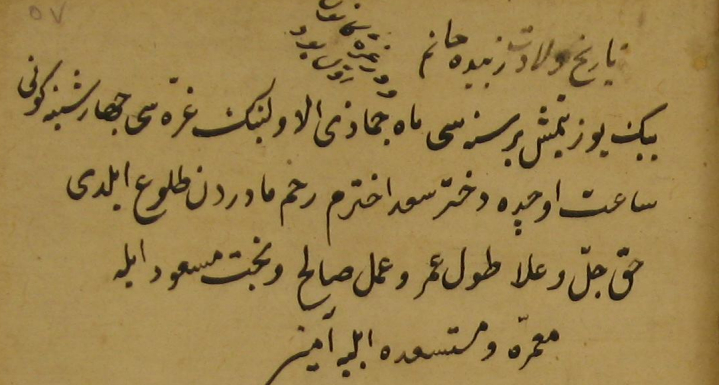 تاریخ ولادت زبیده خانم
بیک یوز یتمش بر سنه سی ماه جماذی الاولینک غرّه سی چهارشنبه کونی
ساعت اوچده دختر سعد اخترم رحم مادردن طلوع ایلدی
حق جلّ و علا طول عمر و عمل صالح و بخت مسعود ایله
معمرّه و مستسعده ایلیه آمین